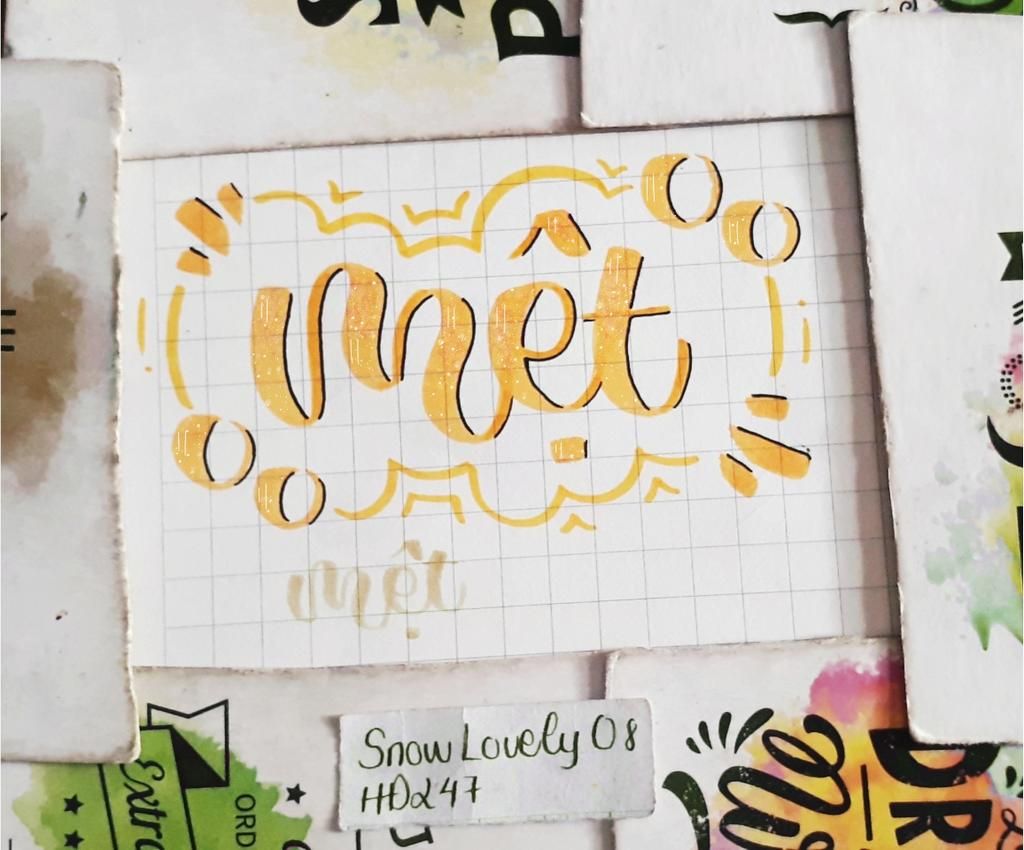 P
mệt
mệt
Snow Lovely 08
HD247
Extra
ORD
DR